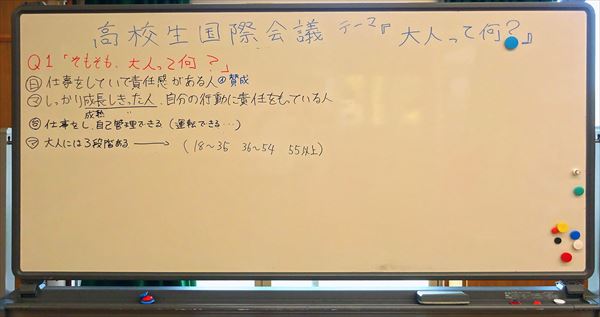 高校生国際会議 テーマ『大人って何？』
Q1「そもそも、大人って何？」
㊐仕事をしていて責任感がある人 賛成
㋮しっかり成長しきった人、自分の行動に責任をもっている人
成熟 〃
仕事をし、自己管理できる（運転できる…）
㋮大人には3段階ある→（18～35 36～54 55以上）